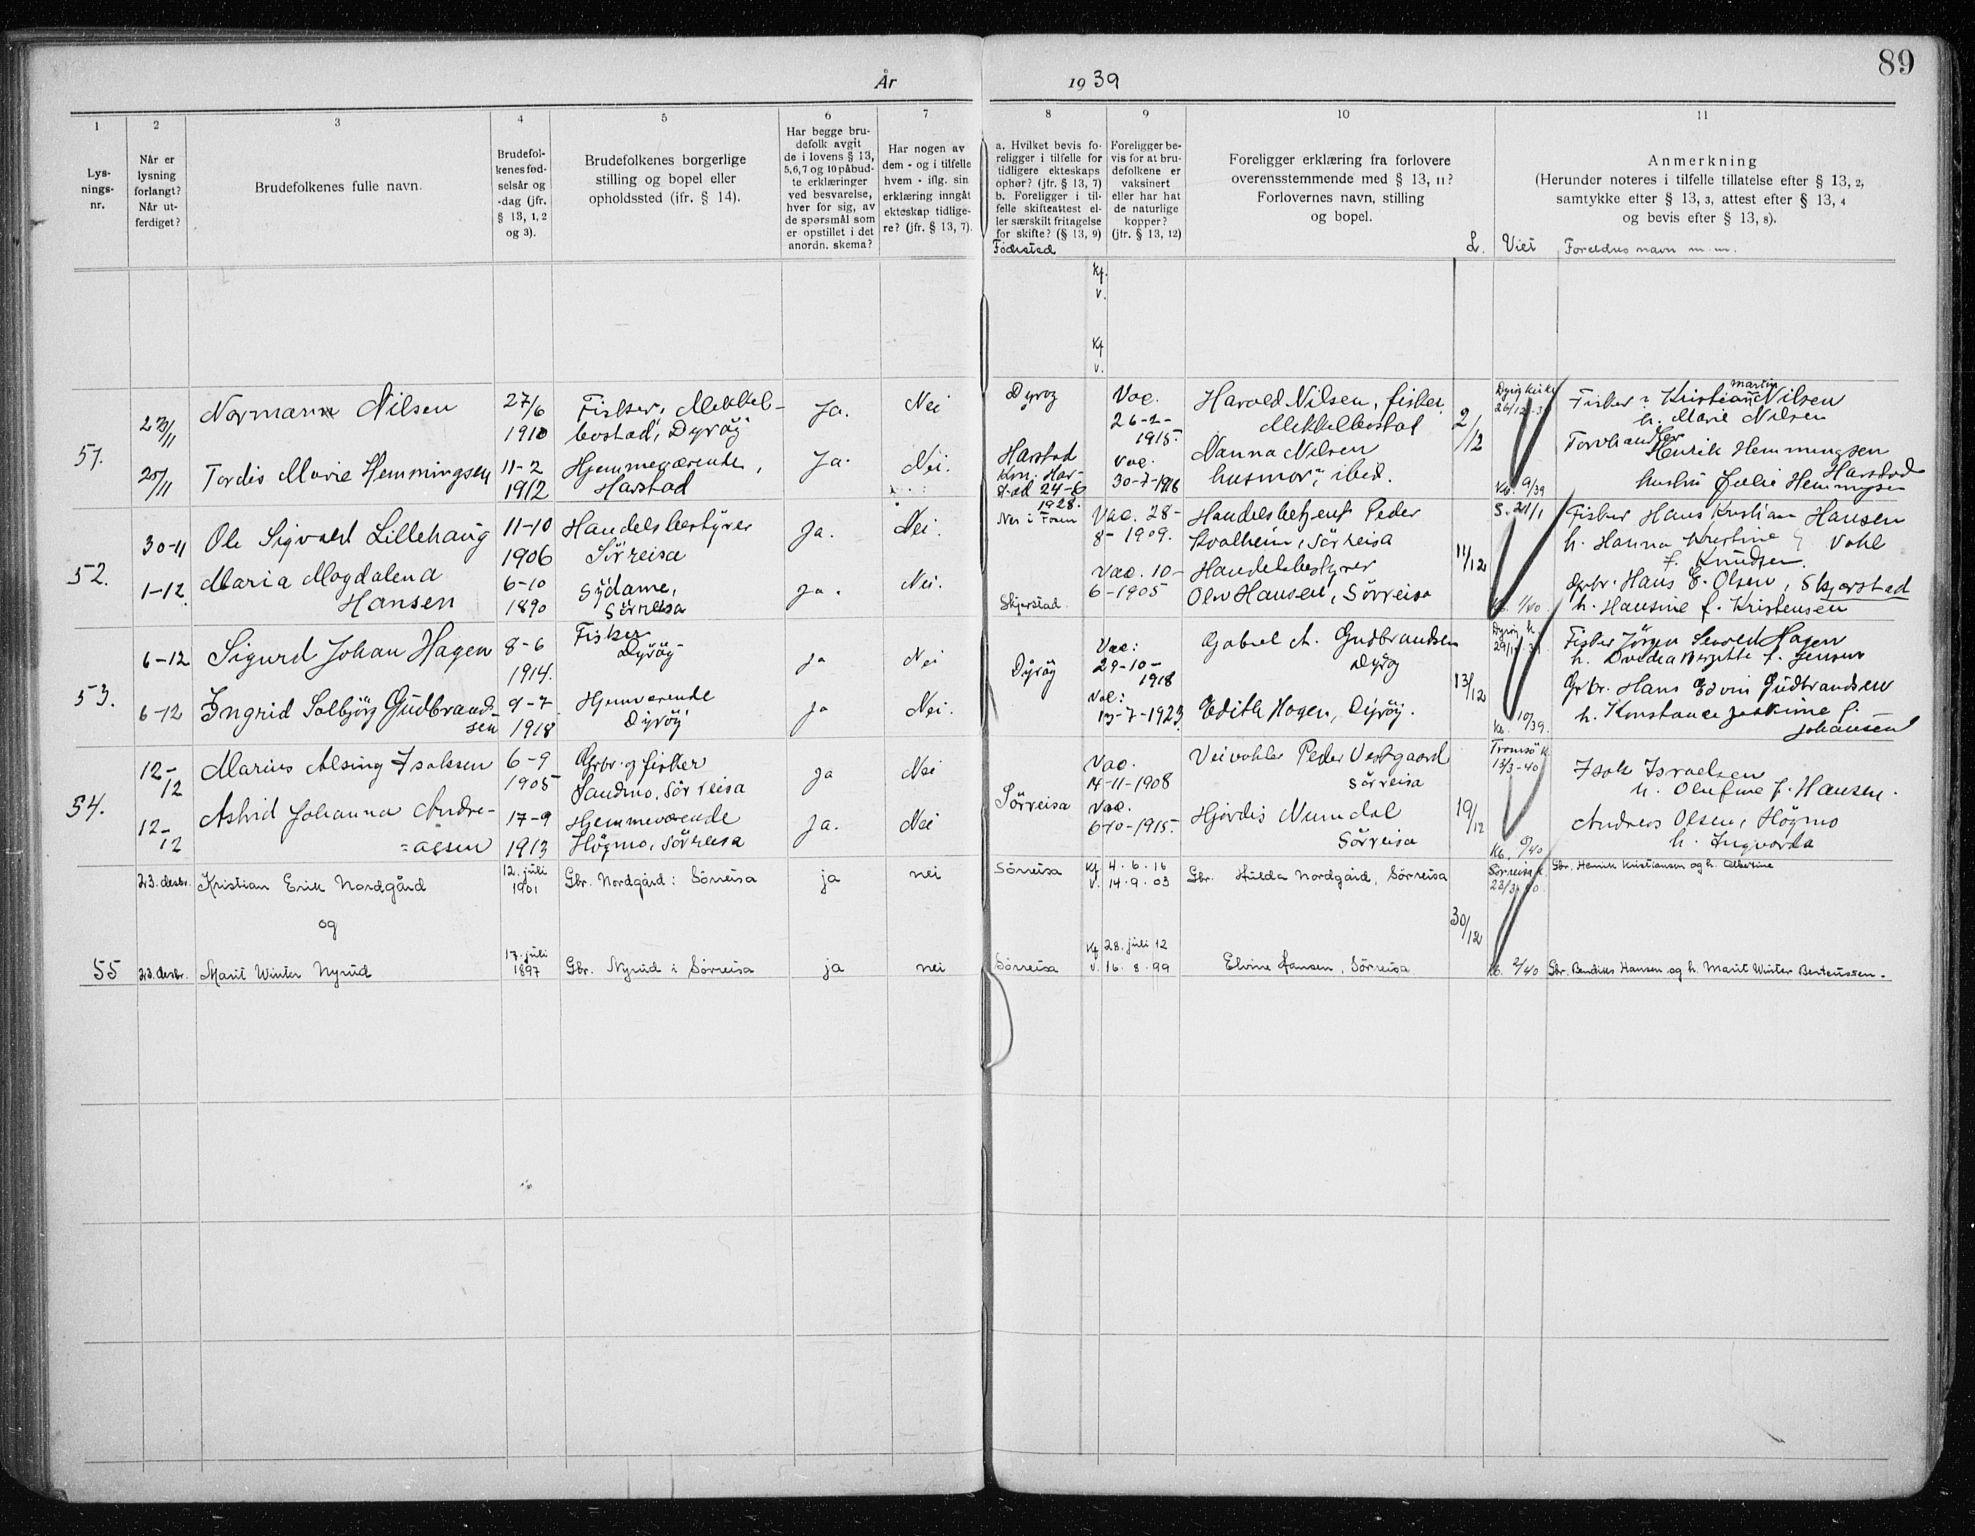 89
År 1939
1
2
3
4
5
6
7
8
9
10
11
Lys-
nings-
nr.
Når er
lysning
forlangt?
Når ut-
ferdiget?
Brudefolkenes fulle navn.
Brudefol-
kenes fød-
selsår og
-dag (jfr.
§ 13, 1, 2
og 3).
Brudefolkenes borgerlige
stilling og bopel eller
opholdssted (jfr. § 14).
Har begge bru-
defolk avgit
de i lovens § 13,
5, 6, 7 og 10 påbud-
te erklæringer
ved besvarelse,
hver for sig, av
de spørsmål som
er opstillet i det
anordn. skema?
Har nogen av
dem - og i tilfelle
hvem - iflg. sin
erklæring inngått
ekteskap tidlige-
re? (jfr. § 13, 7).
a. Hvilket bevis fo-
religger i tilfelle for
tidligere ekteskaps
ophør? (jfr. § 13, 7)
b. Foreligger i til-
felle skifteattest el-
ler særskilt fritagelse
for skifte? (§ 13, 9)
Fødested
Foreligger be-
vis for at bru-
defolkene er
vaksinert
eller har hat
de naturlige
kopper?
(jfr. § 13, 12)
Foreligger erklæring fra forlovere
overensstemmende med § 13, 11?
Forlovernes navn, stilling
og bopel.
L.
Viet
Anmerkning
(Herunder noteres i tilfelle tillatelse efter § 13, 2,
samtykke efter § 13, 3, attest efter § 13, 4
og bevis efter § 13, 8).
Foreldres navn m. m.
Kf.
v.
Kf
v.
51.
23/11
Normann Nilsen
27/6
1910
Fisker, Mekkel-
bostad, Dyröy
Ja.
Nei
Dyröy
Vac.
26-2-
1915.
Harald Nilsen, fisker
Mekkelbostad
2/12
Dyröy kirke
26/12-39
Fisker Kristian Martin Nilsen
h. Marie Nilsen
25/11
Tordis Marie Hemmingsen
11-2
1912
Hjemmeværende,
Harstad
Ja.
Nei.
Harstad
Kon. Har-
stad 24-6
1928.
Vac.
30-7-1918
Nanna Nilsen
husmor, ibed.
Kb. 9/39
Torvhandler
Henrik Hemmingsen
Harstad
hustru Julie Hemmingsen
52.
30-11
Ole Sigvald Lillehaug
11-10
1906
Handelsbestyrer
Sörreisa
Ja.
Nei.
Vac. 28-
8-1909.
Handelsbetjent Peder
Kvalheim, Sörreisa
11/12
S. 21/1
Fisker Hans Kristian Hansen
h. Hanna Kristine
f. Knudsen.
1-12
Maria Magdalena
Hansen
6-10
1890
Sydame,
Sörreisa
Ja.
Nei.
Skjerstad
Vac. 10-
6-1905
Handelsbestyrer
Olav Hansen, Sörreisa
Kb. 1/40
Grbr. Hans E. Olsen, Skjerstad
h. Hansine f. Kristensen
53.
6-12
Sigurd Johan Hagen
8-6
1914.
Fisker
Dyröy
ja
Nei
Dyröy
Vac:
29-10-
1918
Gabriel A. Gudbrandsen
Dyröy
13/12
Dyröy k.
Fisker Jörgen Sevald Hagen
h. Ovedia Bergitte f. Jensen
6-12
Ingrid Solbjörg Gudbrand-
sen
9-7-
1918
Hjemværende
Dyröy
ja
Nei.
Vac:
13-7-1923
Edith Hagen, Dyröy.
Kb. 10/39.
Grbr. Hans Edvin Gudbrandsen
h. Konstance Joakime f.
Johansen
54.
12-
12
Marius Alsing Isaksen
6-9
1905
Grbr. og fisker
Sandmo, Sörreisa
ja
Nei
Sörreisa
Vac.
14-11-1908
Veivokter Peder Vestgaard
Sörreisa
19/12
Tromsö k.
13/3-40
Isak Israelsen
h. Olufine f. Hansen.
12-
12
Astrid Johanna Andre-
asen
17-9
1913
Hjemmeværende
Högmo, Sörreisa
Ja.
Nei
Vac.
6-10-1915.
Hjördis Numdal
Sörreisa
Kb. 8/40
Andreas Olsen, Högmo
h. Ingvarda
23. desbr.
Kristian Erik Nordgård
12. juli
1901
Gbr. Nordgård i Sörreisa
ja
nei
Sörreisa
Kf 4.6.16
v. 14.9.03
Gbr. Hulda Nordgård, Sörreisa
Sörreisa k.
23/3-40.
Gbr. Henrik Kristiansen og h. Albertine
og
30/12
55
23. desbr.
Marit Winter Nyrud
17. juli
1897
Gbr. Nyrud i Sörreisa
ja
nei
Sörreisa
Kf 28. juli 12
v. 16.8.99
Elvine Hansen, Sörreisa
Kb. 2/40
Gbr. Bendiks Hansen og h. Marit Winter Berteussen.